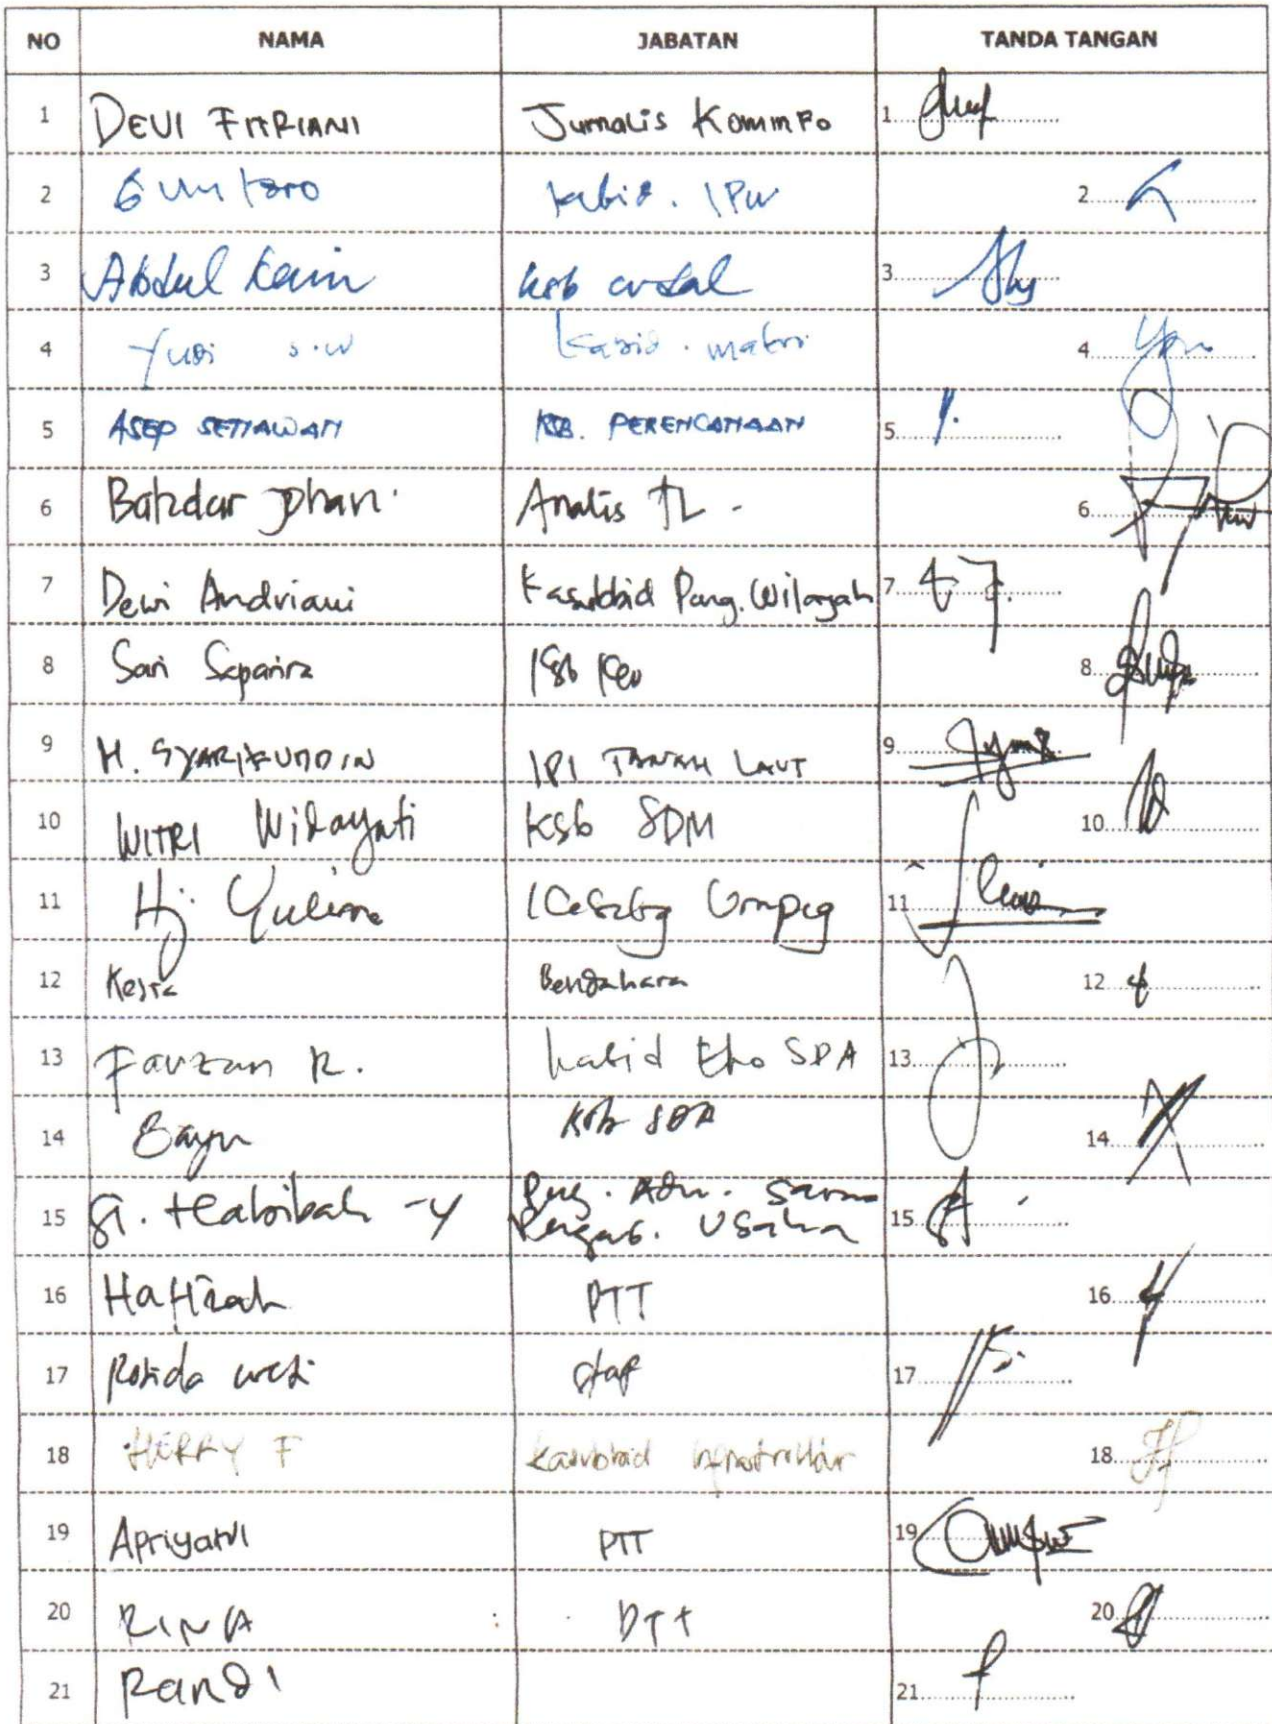 NO NAMA JABATAN TANDA TANGAN
1 DEVI FITRIANI Jurnalis Kominfo 1
2 Guntoro kabid. IPW 2
3 Abdul ksb 3
4 Yudi S.W Kabid. makro 4
5 ASEP SETIAWAN KSB. PERENCANAAN 5
6 Bahdar Johan. Analis TL - 6
7 Dewi Andriani Kasubbid Pang. Wilayah 7
8 Sari Ksb Keu 8
9 H. SYARIFUDDIN IPI TANAH LAUT 9
10 WITRI Widayati Ksb SDM 10
11 Hj. Yuliana Kasubbag Umpeg 11
12 Kesia Bendahara 12
13 Fauzan R. kabid Eko SDA 13
14 Bayu Ksb SDA 14
15 St. Habibah -Y Peng. Adm. Sarana 15
Pengemb. Usaha
16 Hafizah PTT 16
17 Rosida staf 17
18 HERRY F Kasubbid Infrastruktur 18
19 Apriyandi PTT 19
20 RINA PTT 20
21 Randi 21